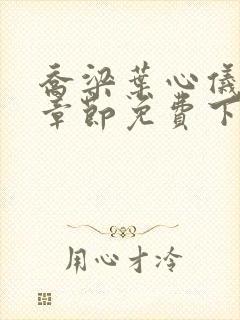 乔梁叶心仪
章节免费下
用心才冷